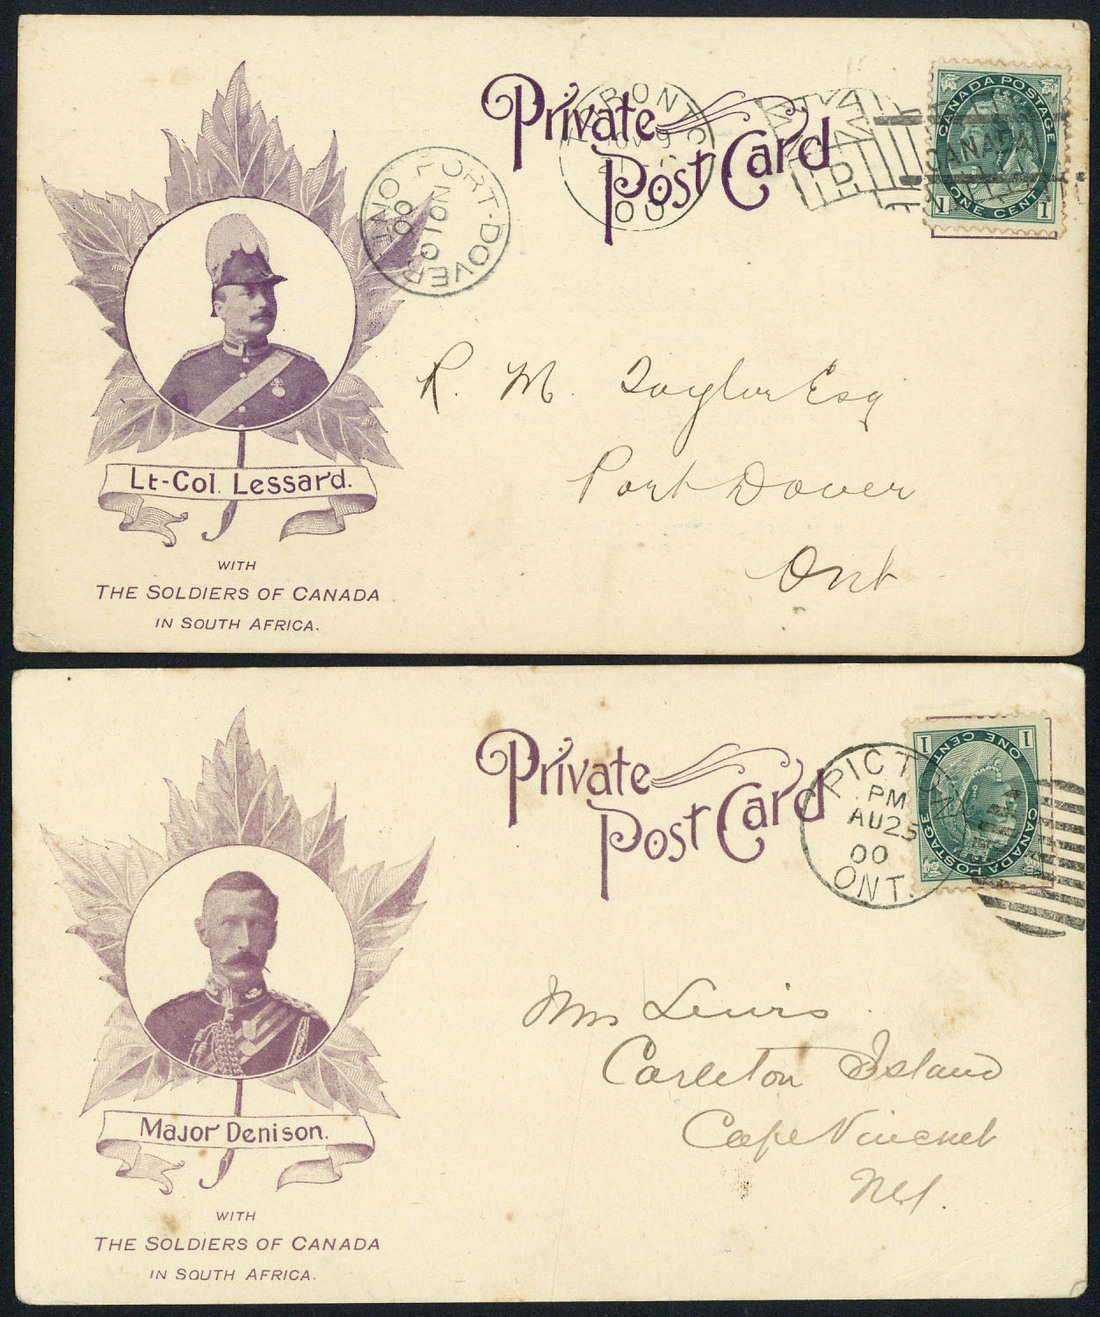 Private
Post Card
TORONTO
NOV 9
00
CANADA
CANADA POSTAGE
ONE CENT
1 1
PORT-DOVER
NO 10
00
ONT
R. M. Taylor Esq
Port Dover
Ont
Lt-Col. Lessard.
WITH
THE SOLDIERS OF CANADA
IN SOUTH AFRICA.
Private
Post Card
PICTON
PM
AU 25
00
ONT.
1 1
ONE CENT
CANADA POSTAGE
Mrs Lewis
Carleton Island
Cape Vincent
Major Denison.
WITH
THE SOLDIERS OF CANADA
IN SOUTH AFRICA.